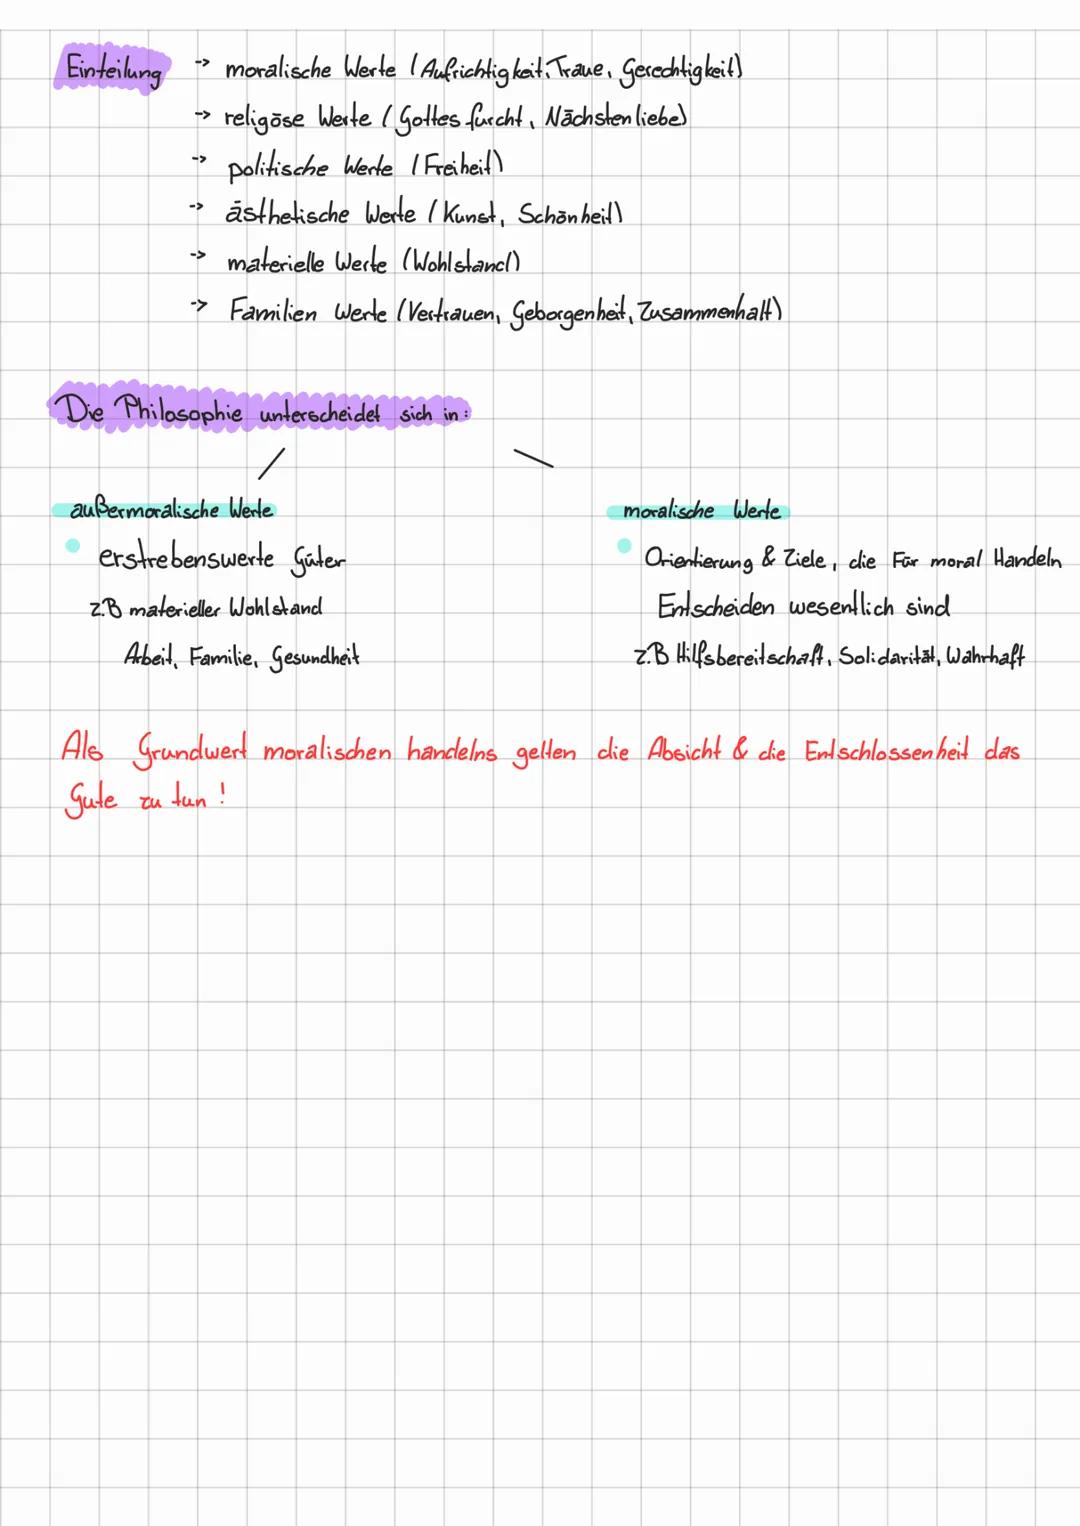 Einteilung -> moralische Werte (Aufrichtigkeit, Traue, Gerechtigkeit)
-> religöse Werte (Gottesfurcht, Nächstenliebe)
-> politische Werte (Freiheit)
-> ästhetische Werte (Kunst, Schönheit)
-> materielle Werte (Wohlstand)
-> Familien Werte (Vertrauen, Geborgenheit, Zusammenhalt)
Die Philosophie unterscheidet sich in:
außermoralische Werte
erstrebenswerte Güter
z.B materieller Wohlstand
Arbeit, Familie, Gesundheit
moralische Werte
Orientierung & Ziele, die Für moral Handeln
Entscheiden wesentlich sind
z.B Hilfsbereitschaft, Solidarität, Wahrhaft
Als Grundwert moralischen handelns gelten die Absicht & die Entschlossenheit das
Gute zu tun!